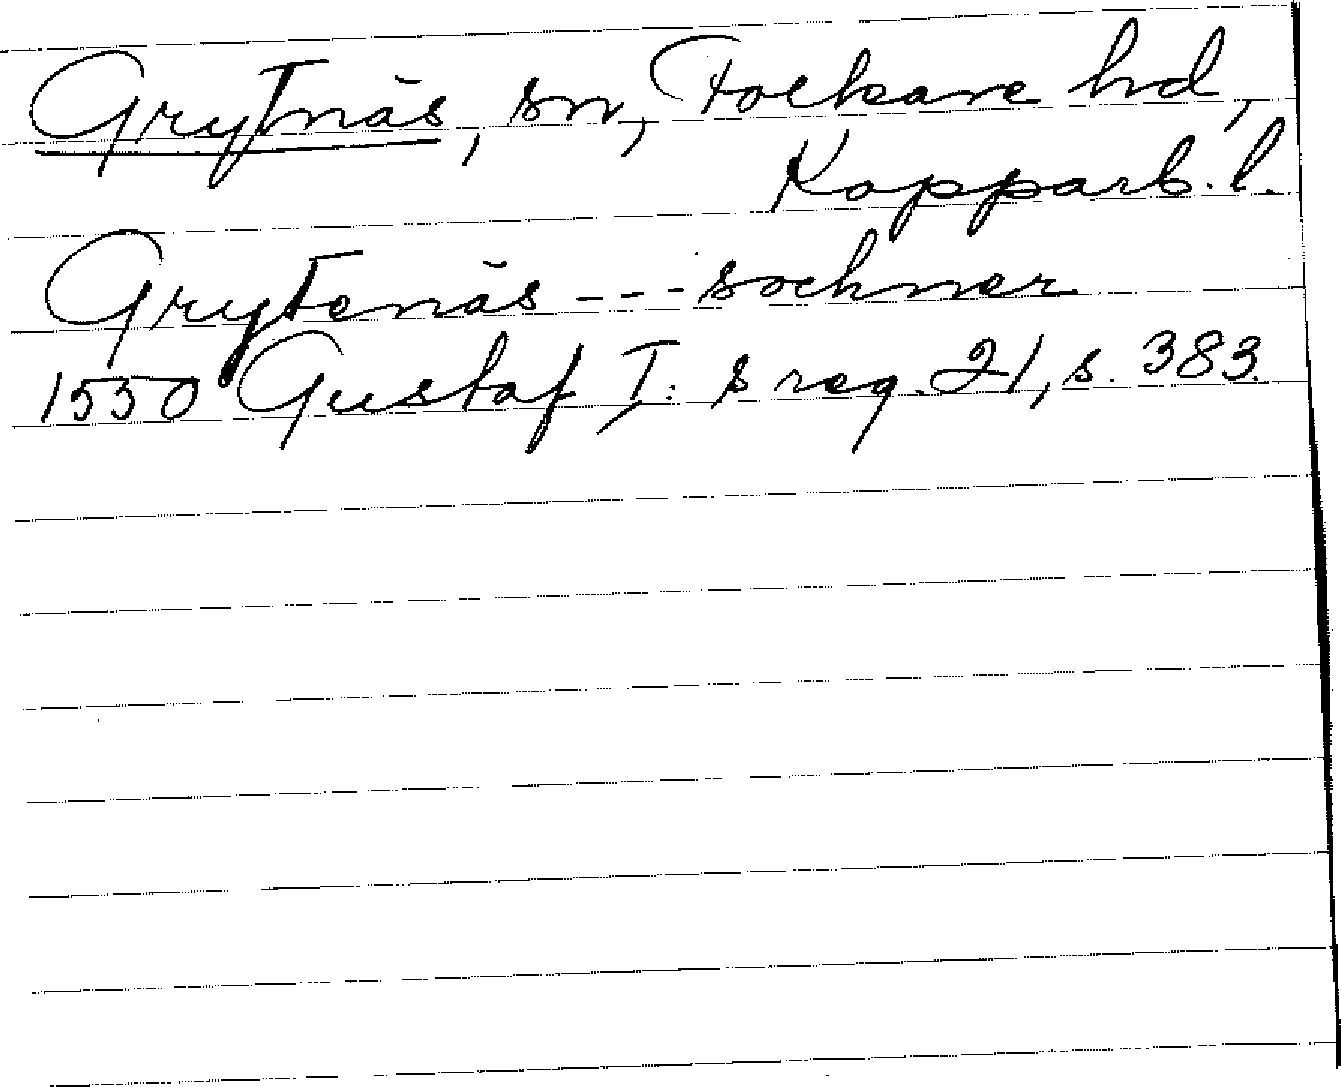 Grytnäs, sn, Folkare hd,
Kopparb. l.
Grytenäs --- sochner
1550 Gustaf I:s reg. 21, s. 383.